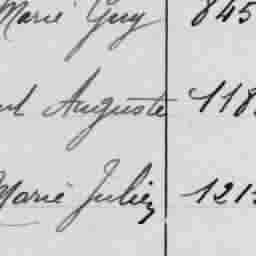 Marie Guy 845
Auguste 118
Marie Julien 121